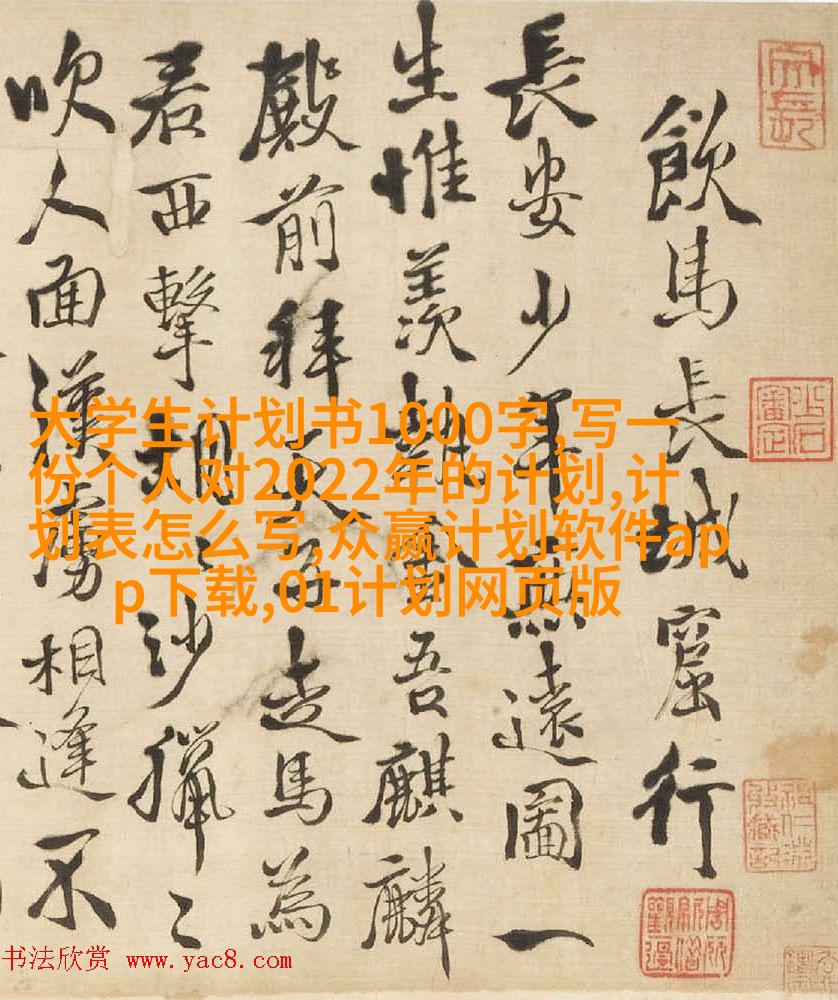 飲馬長城窟行
長安少年無遠圖一
生惟羨執金吾麒麟
殿前拜天子走馬為
君西擊胡〻沙獵〻
吹人面漢虜相逢不
大学生计划书1000字,写一
份个人对2022年的计划,计
划表怎么写,众赢计划软件ap
p下载,01计划网页版
书法欣赏 www.yac8.com